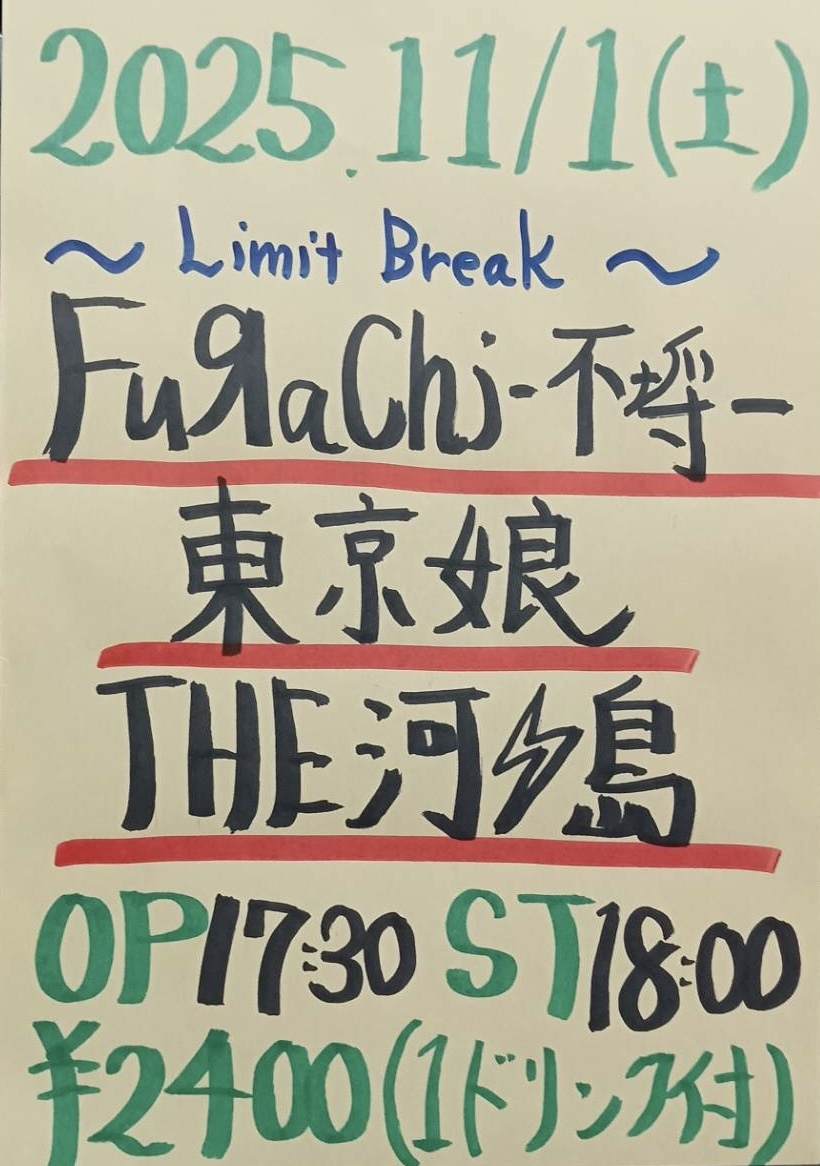 2025.11/1(土)
〜 Limit Break 〜
FuЯaChi-不埒-
東京娘
THE河⚡島
OP17:30 ST18:00
¥2400(1ドリンク付)